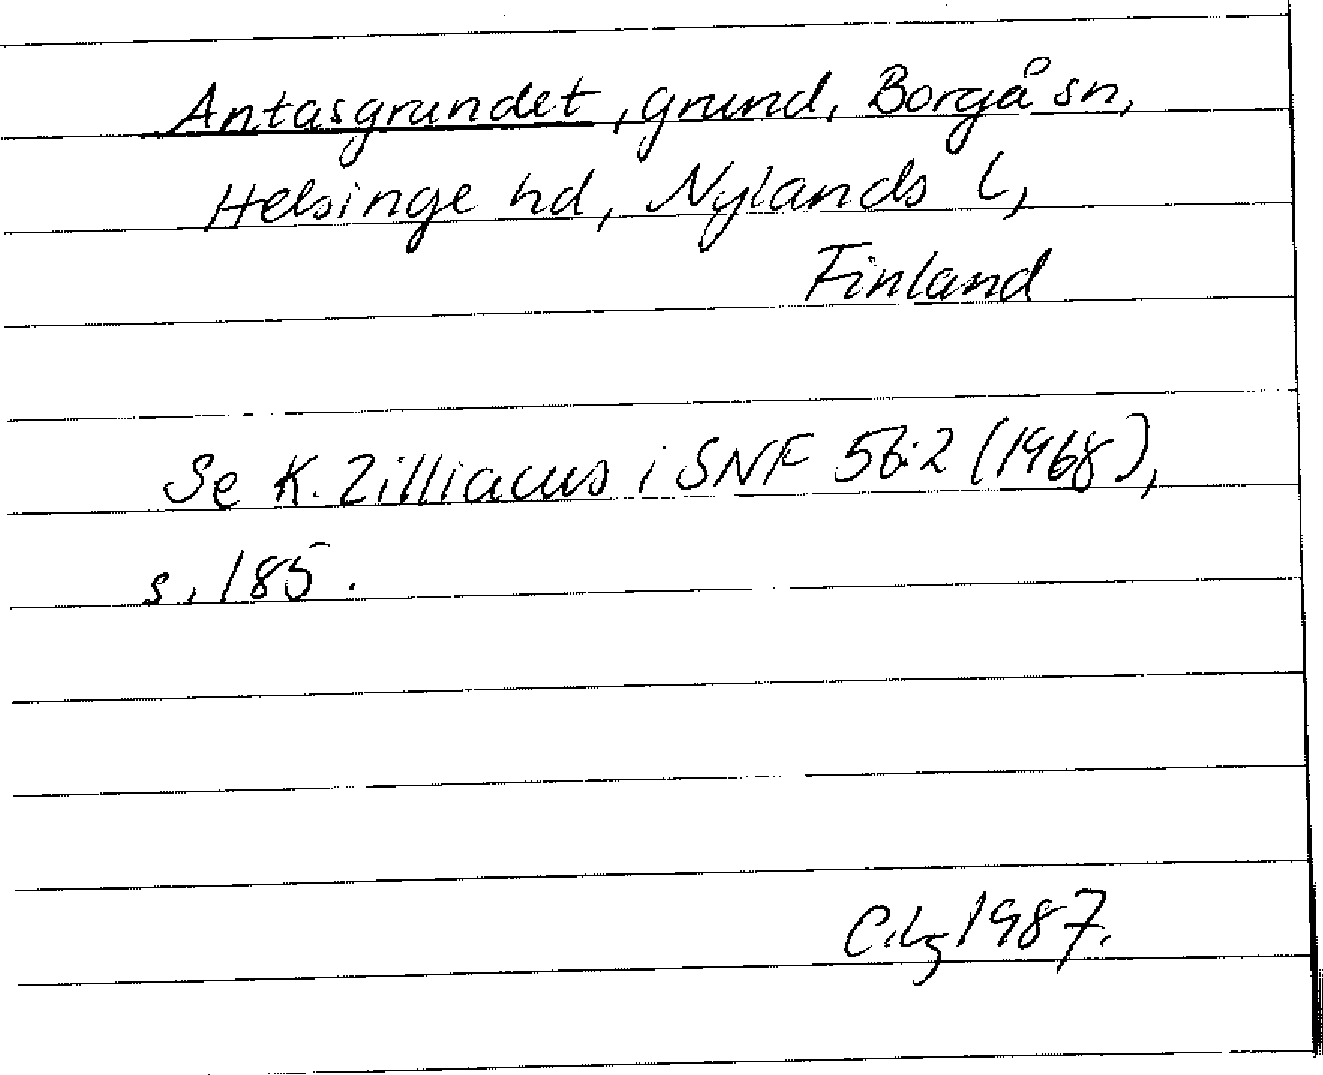 Antasgrundet, grund, Borgå sn,
Helsinge hd, Nylands l,
Finland
Se K. Zilliacus i SNF 56:2 (1968),
s. 185.
1987.